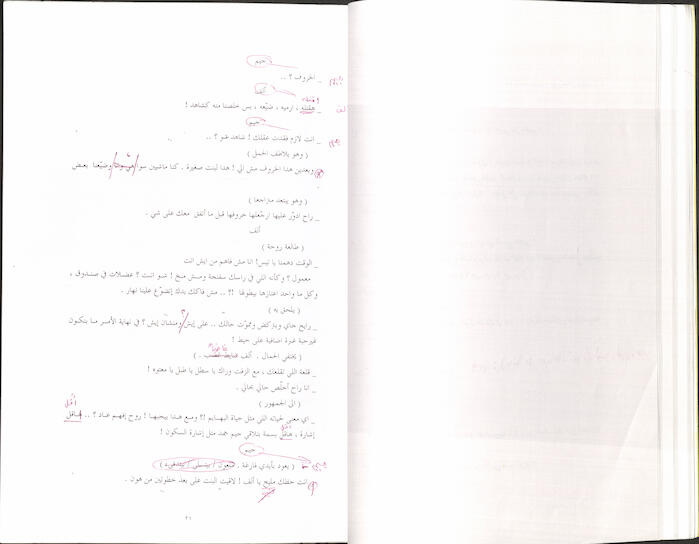 جيم
_ الخروف ؟ ..
ألف
_ ، ارميه ، ضيّعه ، بس خلصنا منه كشاهد !
جيم
_ انت لازم فقدت عقلك ! شاهد غو ؟ ..
( وهو يلاطف الحمل )
وبعدين هذا الخروف مش الي ! هذا لبنت صغيرة . كنا ماشيين سوا وضيّعنا بعض
( وهو يبتعد متراجعا )
_ راح ادوّر عليها ارجّعلها خروفها قبل ما أتفق معك على شي .
ألف
( طالعة روحة )
_ الوقت دهمنا يا تيس! انا مش فاهم من ايش انت
معمول ؟ وكأنه اللي في راسك سفنجة ومش مخ ! شو انت ؟ عضلات في صندوق ،
وكل ما واحد اعتازها بيطولها !؟ .. مش فاكك بدك إتضوّع علينا نهار .
( يلحق به )
_ رايح جاي وبتركض ومموّت حالك .. على إيش / ومنشان إيش ؟ في نهاية الأمر ما بتكون
غير حبة غبرة اضافية على حيط !
( يختفي الجمال . ألف . )
_ قلعة اللي تقلعك ، مع الزفت وراك يا سطل يا طبل يا معتوه !
_ انا راح أخلّص حالي بحالي .
( الى الجمهور )
_ اي معنى لحياته اللي مثل حياة البهايم !؟ ومع هذا بيحبها ! روح إفهم عاد ؟ .. أقل
إشارة ، أقل بسمة بتلاقي جيم جمد مثل إشارة السكون !
جيم
( يعود بأيدي فارغة . )
_ انت حظك مليح يا ألف ! لاقيت البنت على بعد خطوتين من هون .
٢١